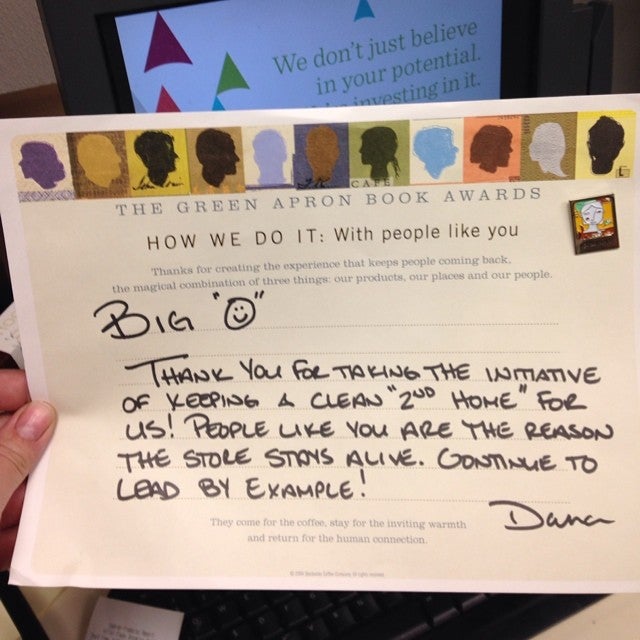 We don't just believe
in your potential.
investing in it.
CAFE
THE GREEN APRON BOOK AWARDS
HOW WE DO IT: With people like you
Thanks for creating the experience that keeps people coming back,
the magical combination of three things: our products, our places and our people.
BIG "O"
THANK YOU FOR TAKING THE INITIATIVE
OF KEEPING A CLEAN "2ND HOME" FOR
US! PEOPLE LIKE YOU ARE THE REASON
THE STORE STAYS ALIVE. CONTINUE TO
LEAD BY EXAMPLE!
Dana
They come for the coffee, stay for the inviting warmth
and return for the human connection.